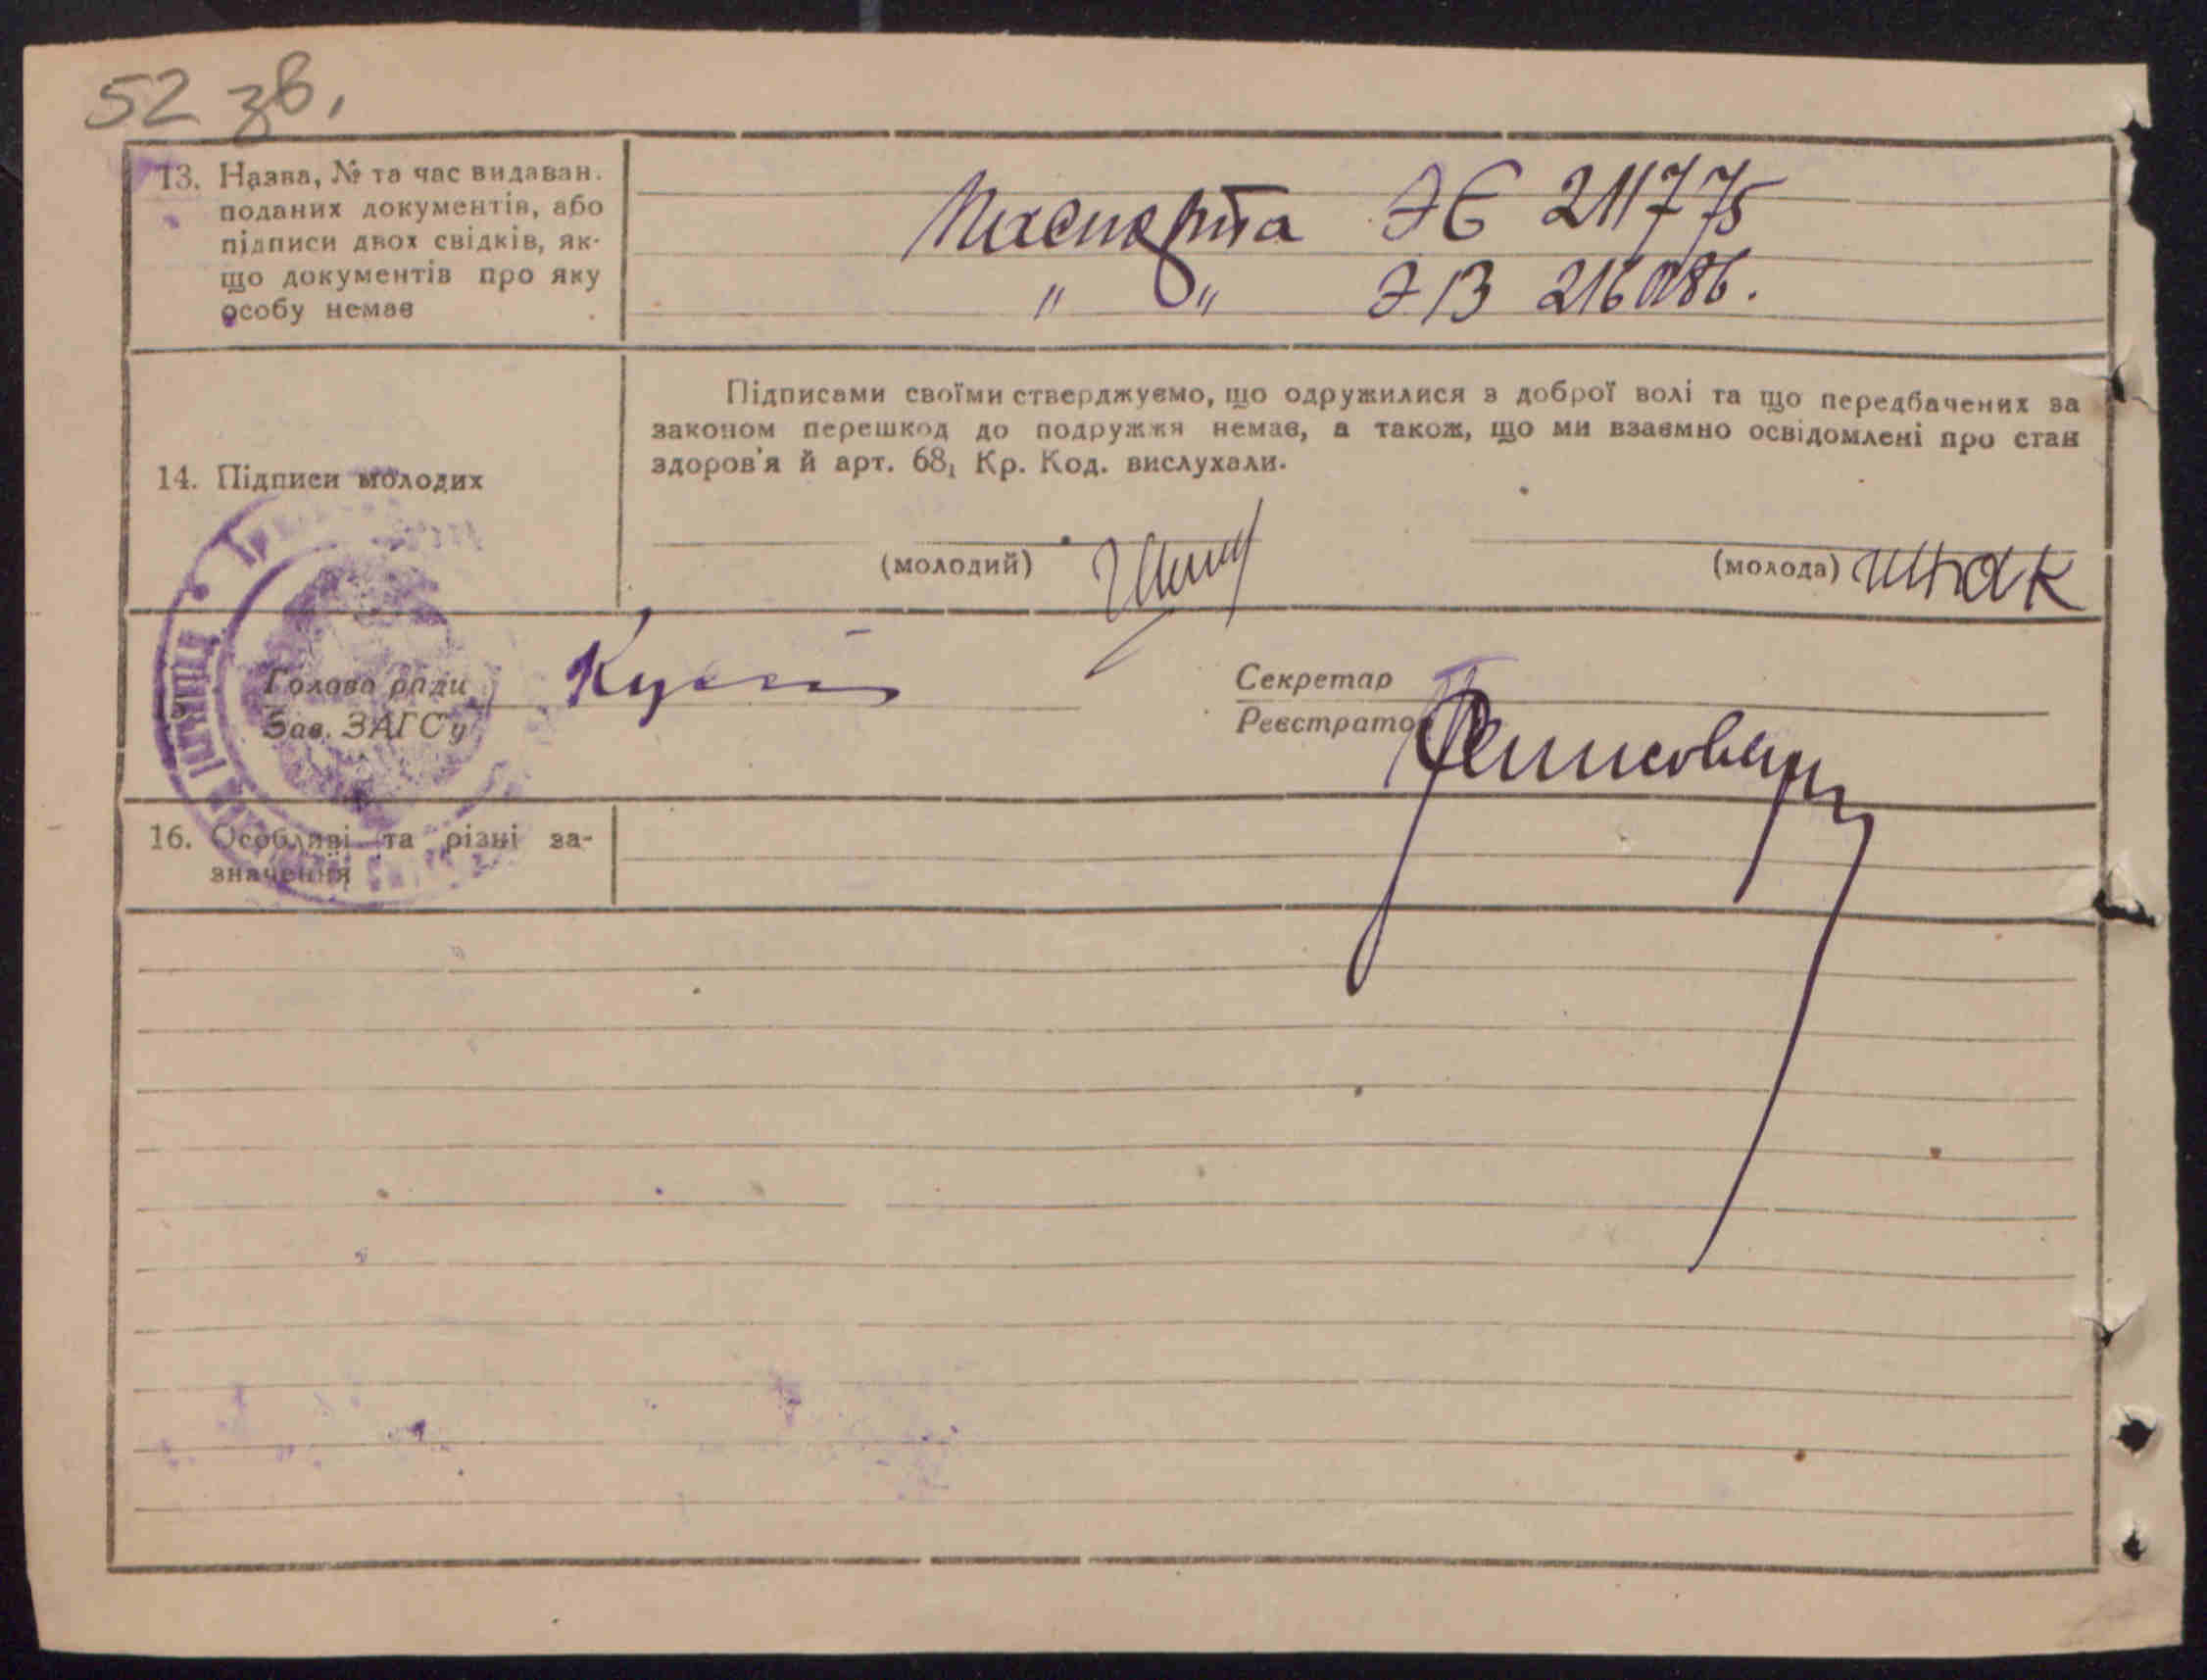 52 зв.
13. Назва, № та час видаван.
поданих документів, або
підписи двох свідків, як-
що документів про яку
особу немає
Паспорта ЭЄ 211775
" " ЭВ 216086.
Підписами своїми стверджуємо, що одружилися з доброї волі та що передбачених за
законом перешкод до подружжя немає, а також, що ми взаємно освідомлені про стан
здоров'я й арт. 68₁ Кр. Код. вислухали.
14. Підписи молодих
(молодий)
(молода) Шпак
Голова ради
Зав. ЗАГСу
Секретар
Реєстратор
16. Особливі та різні за-
значення